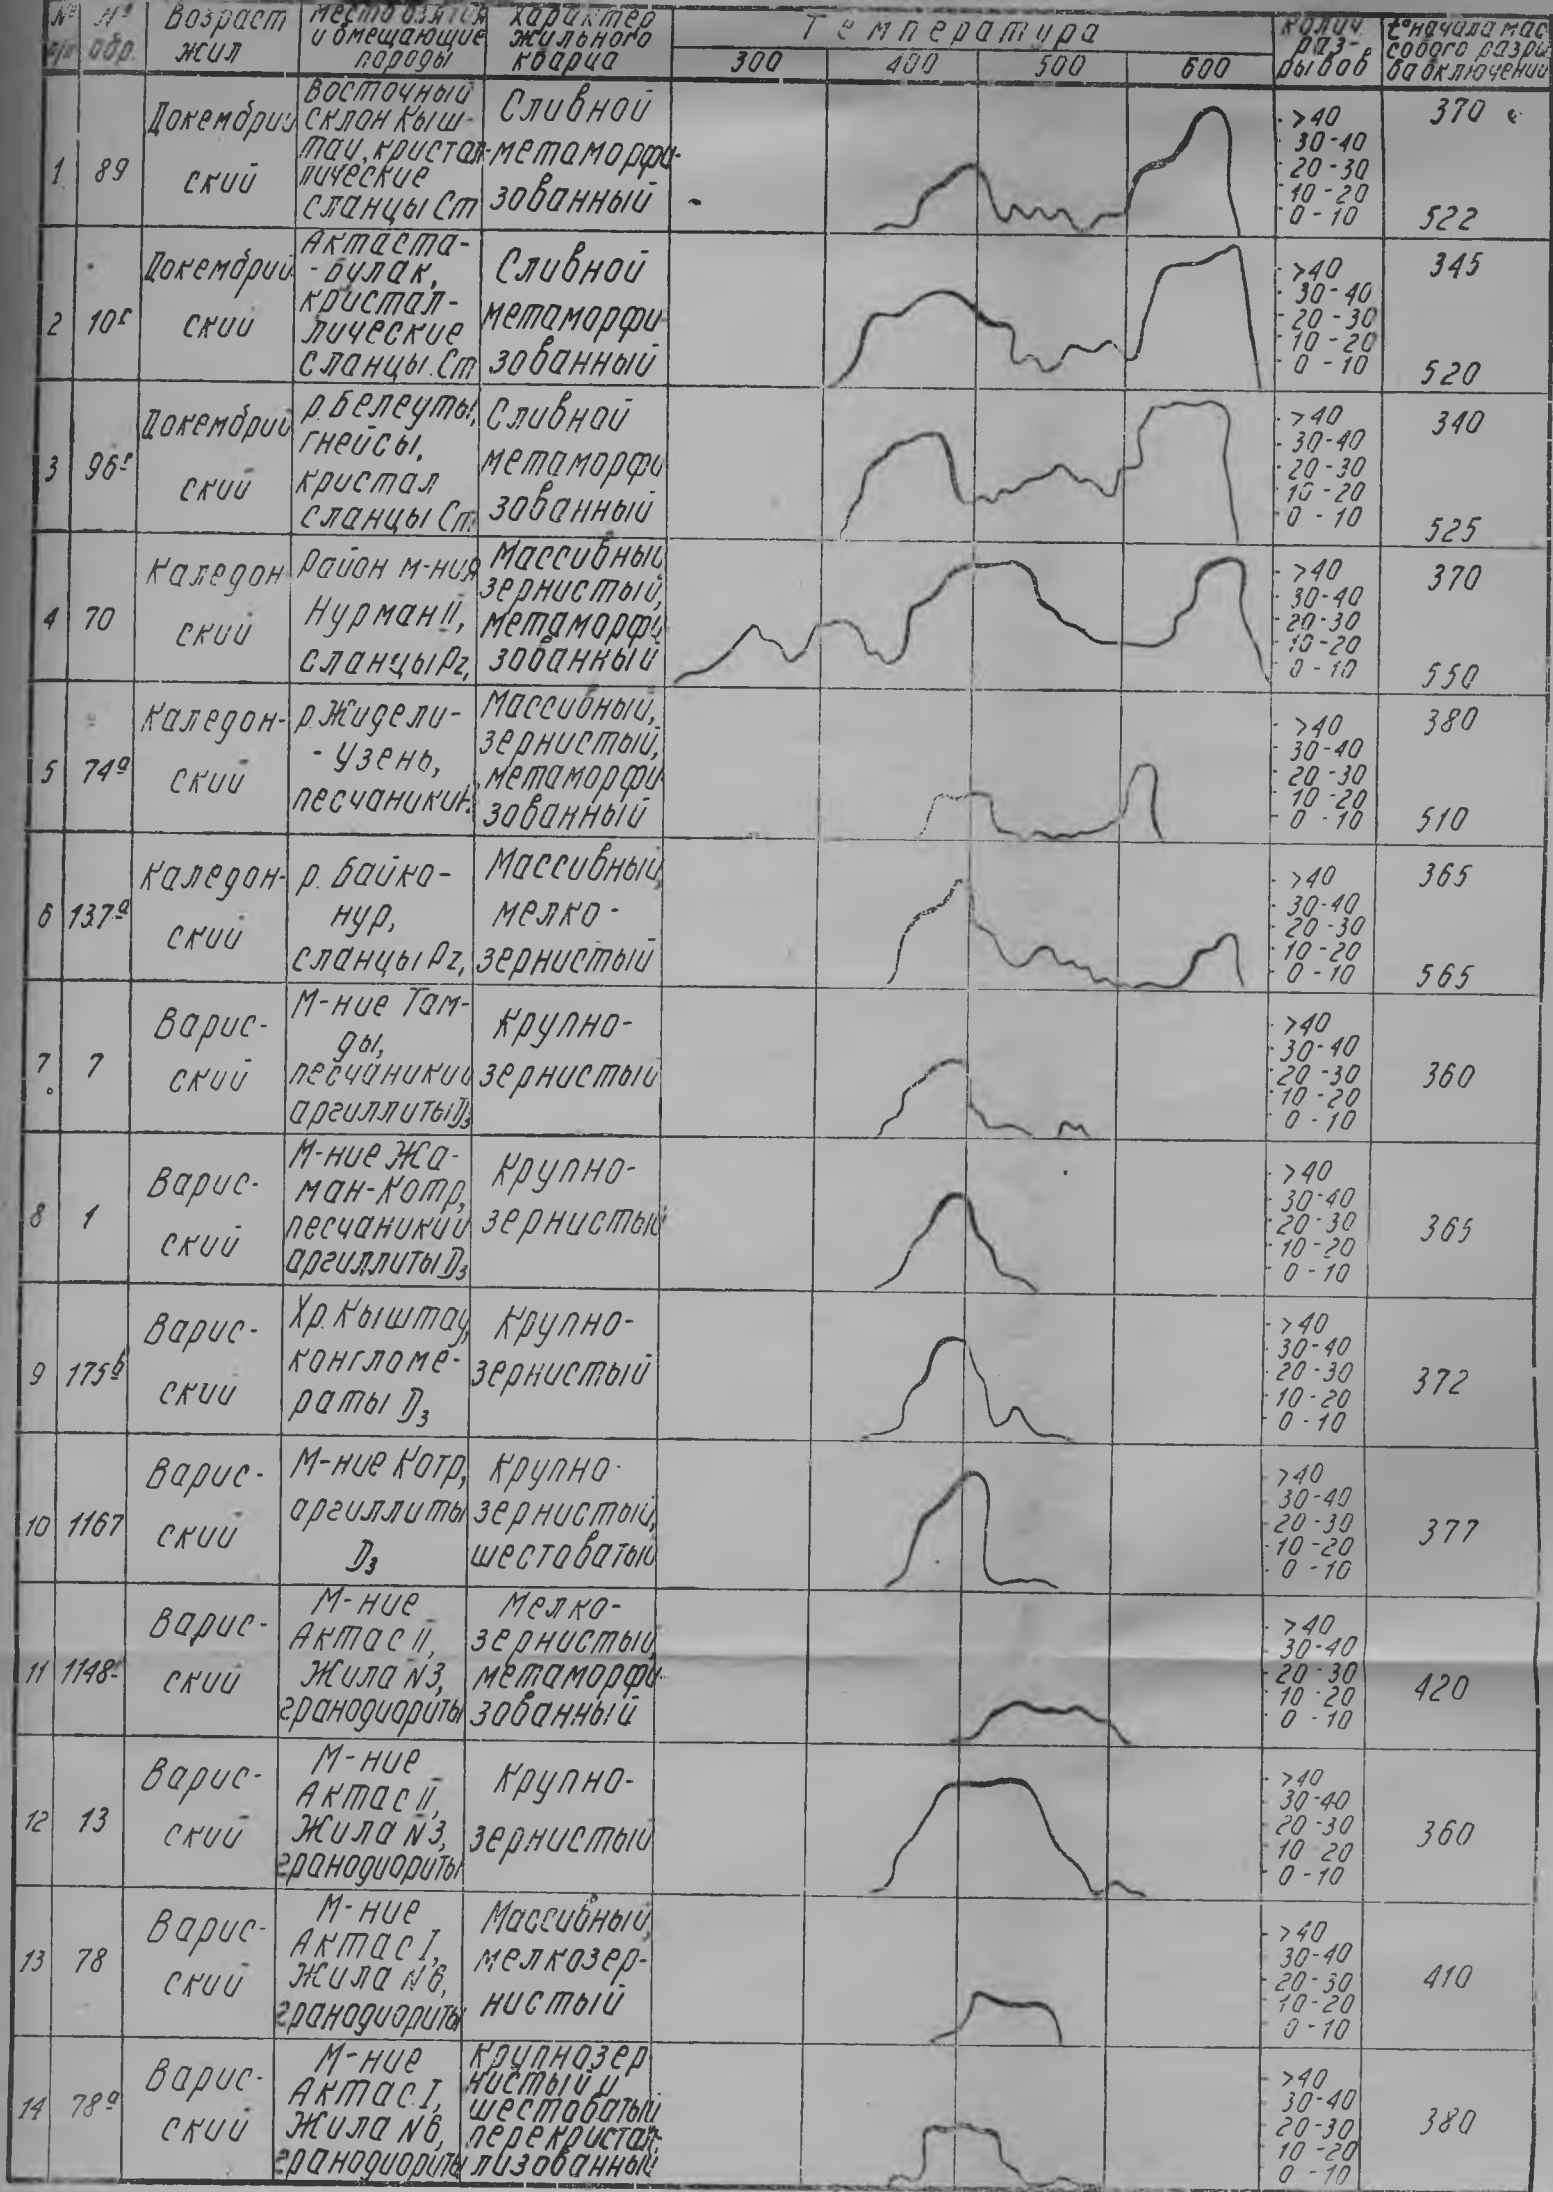 № п/п
№ обр.
Возраст
жил
Место взятия
и вмещающие
породы
Характер
жильного
кварца
Температура
300 400 500 600
Колич.
раз-
рывов
t° начала мас
сового разры
ва включений
1
89
Докембрий
ский
Восточный
склон Кыш-
тау, кристал-
лические
сланцы Cm
Сливной
метаморфи-
зованный
>40
30-40
20-30
10-20
0-10
370
522
2
10г
Докембрий-
ский
Актаста-
-булак,
кристал-
лические
сланцы Cm
Сливной
метаморфи
зованный
>40
30-40
20-30
10-20
0-10
345
520
3
96г
Докембрий
ский
р. Белеуты,
гнейсы,
кристал
сланцы Cm
Сливной
метаморфи
зованный
>40
30-40
20-30
10-20
0-10
340
525
4
70
Каледон
ский
Район м-ния
Нурман II,
сланцы Pz,
Массивный
зернистый,
метаморфи
зованный
>40
30-40
20-30
10-20
0-10
370
550
5
74а
Каледон-
ский
р. Жидели-
-Узень,
песчаники
Массивный,
зернистый,
метаморфи
зованный
>40
30-40
20-30
10-20
0-10
380
510
6
137а
Каледон-
ский
р. Байко-
нур,
сланцы Pz,
Массивный,
мелко-
зернистый
>40
30-40
20-30
10-20
0-10
365
565
7
7
Варис-
ский
М-ние Там-
ды,
песчаники и
аргиллиты D₃
Крупно-
зернистый
>40
30-40
20-30
10-20
0-10
360
8
1
Варис-
ский
М-ние Жа-
ман-Котр,
песчаники и
аргиллиты D₃
Крупно-
зернистый
>40
30-40
20-30
10-20
0-10
365
9
175б
Варис-
ский
Хр. Кыштау,
конгломе-
раты D₃
Крупно-
зернистый
>40
30-40
20-30
10-20
0-10
372
10
1167
Варис-
ский
М-ние Котр,
аргиллиты
D₃
Крупно-
зернистый,
шестоватый
>40
30-40
20-30
10-20
0-10
377
11
1148
Варис-
ский
М-ние
Актас II,
Жила N3,
гранодиориты
Мелко-
зернистый,
метаморфи-
зованный
>40
30-40
20-30
10-20
0-10
420
12
13
Варис-
ский
М-ние
Актас II,
Жила N3,
гранодиориты
Крупно-
зернистый
>40
30-40
20-30
10 20
0-10
360
13
78
Варис-
ский
М-ние
Актас I,
Жила N6,
гранодиориты
Массивный,
мелкозер-
нистый
>40
30-40
20-30
10-20
0-10
410
14
78а
Варис-
ский
М-ние
Актас I,
Жила N6,
гранодиориты
Крупнозер
нистый и
шестоватый
перекристал-
лизованный
>40
30-40
20-30
10-20
0-10
380